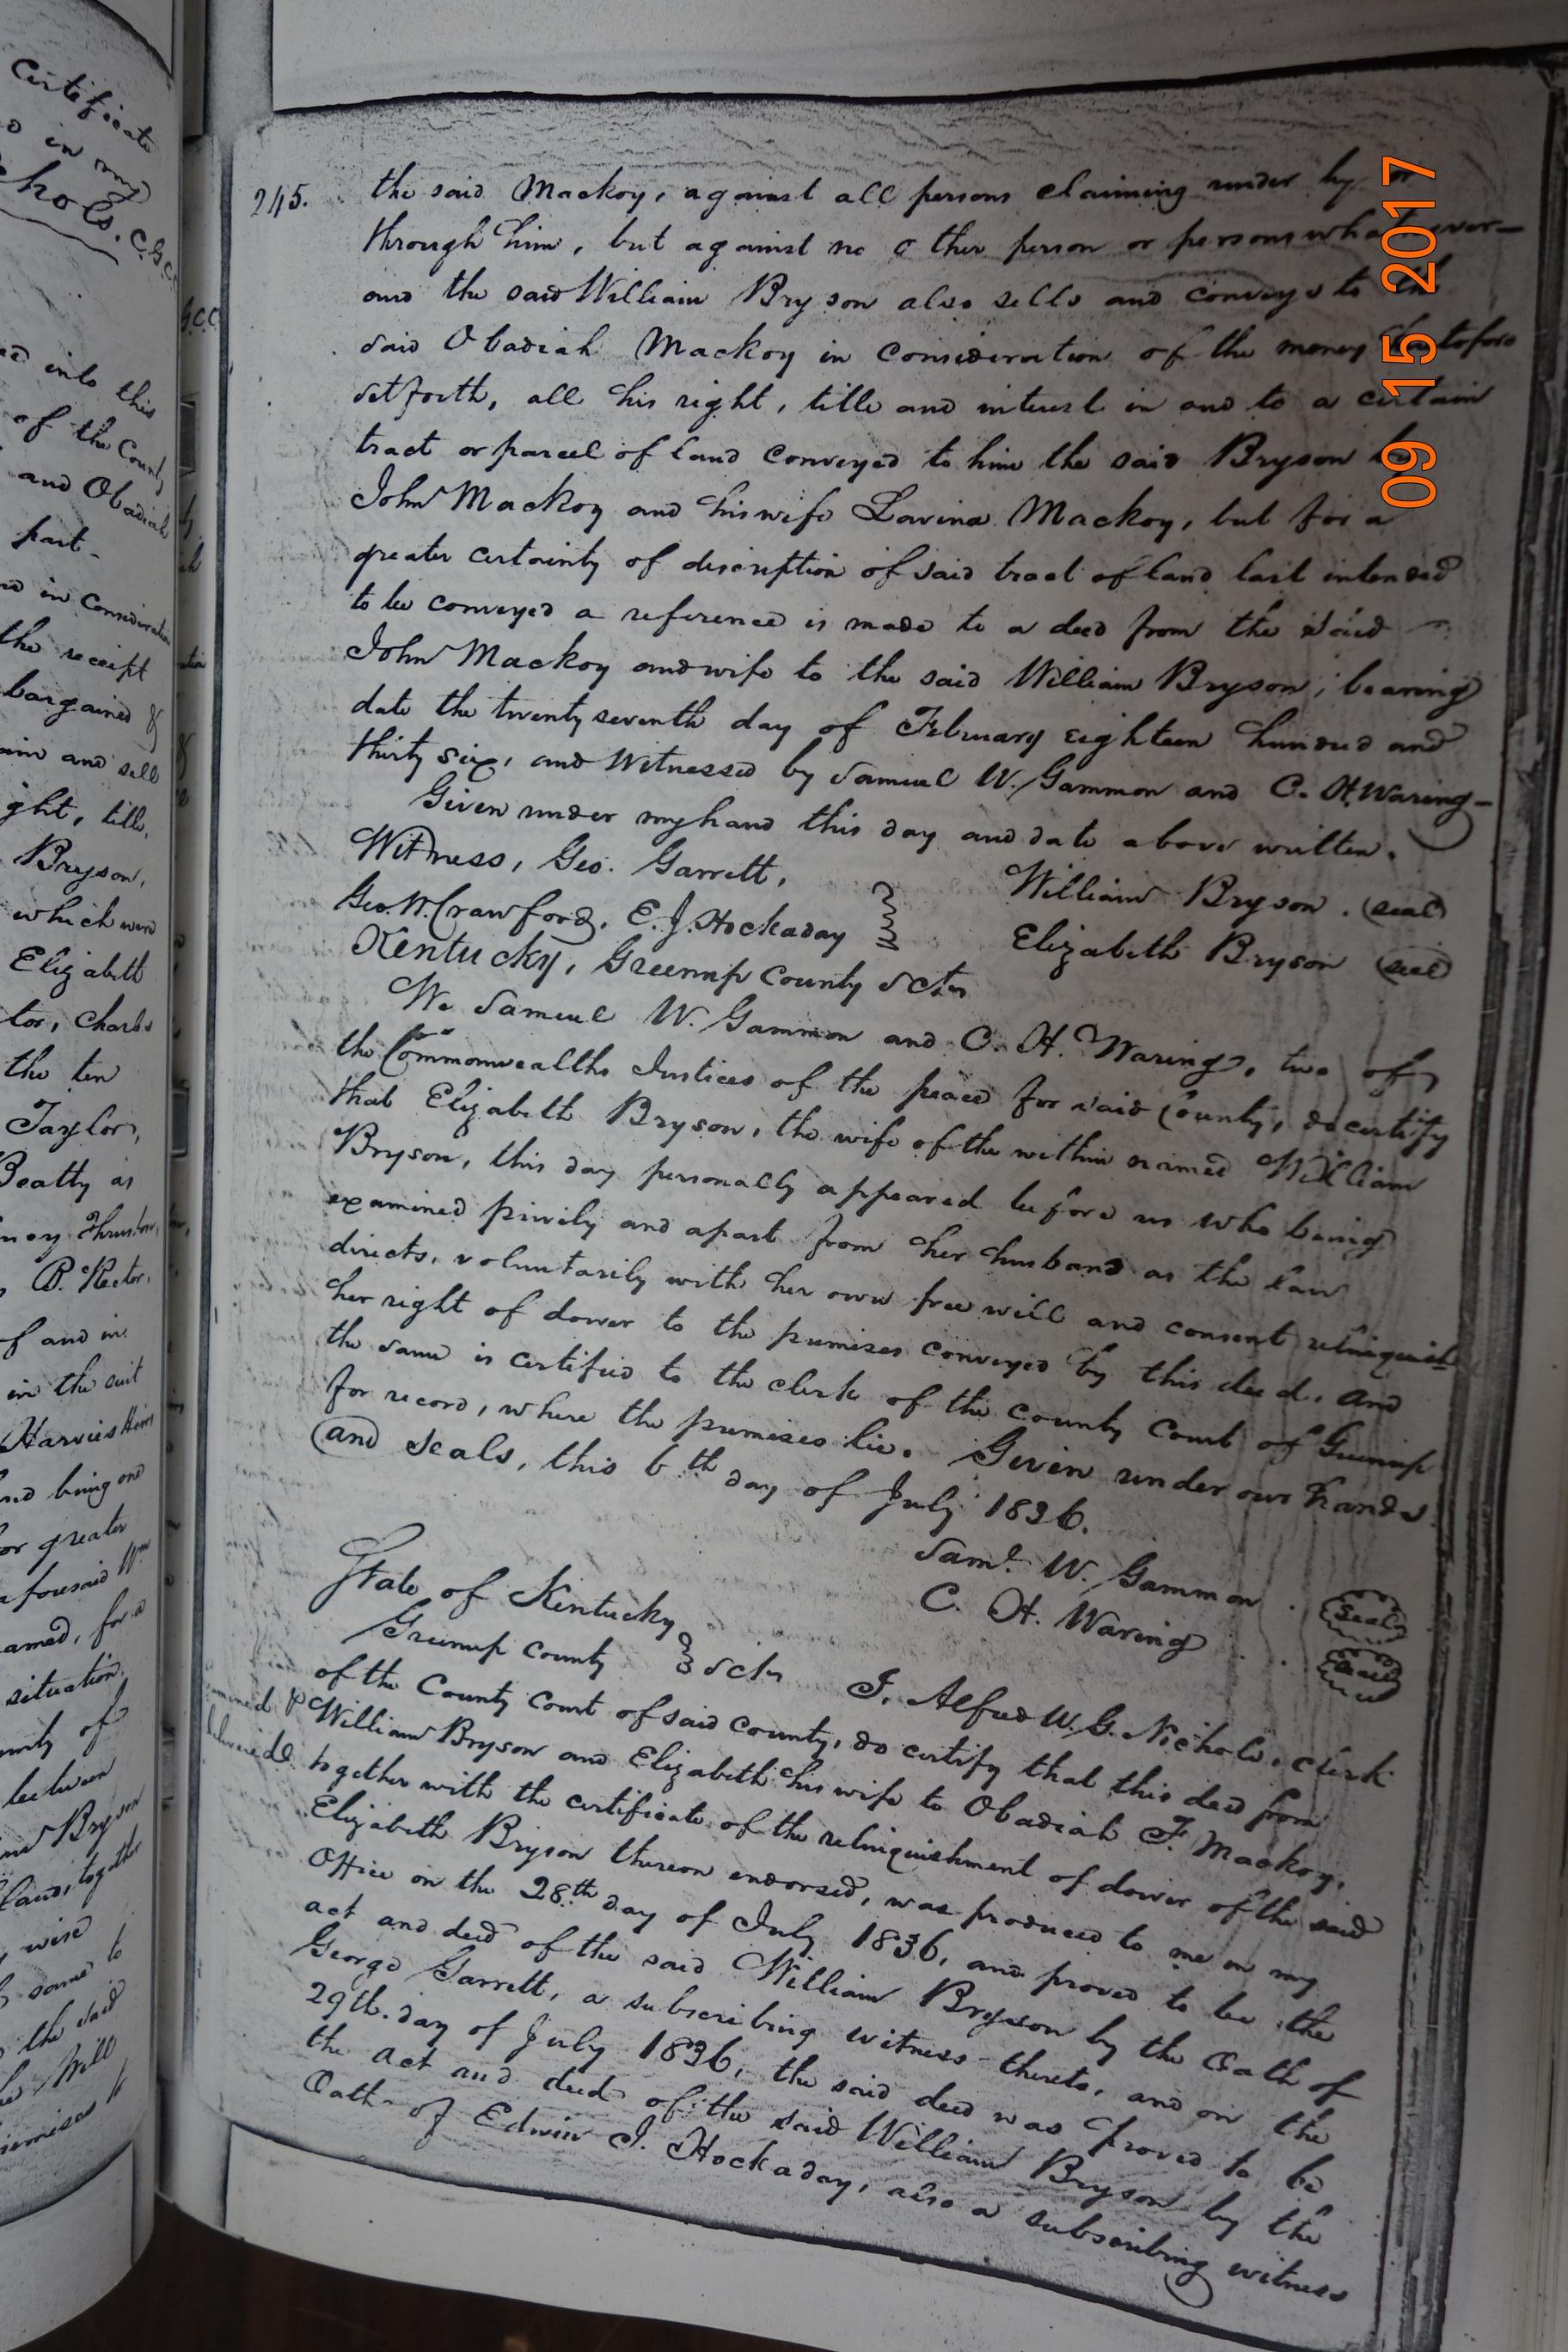 Certificate
in my
hols. C.G.C.
G.C.C
into this
of the County
and Obadiah
part-
in Consideration
the receipt
bargained &
and sell
ght, title,
Bryson,
which were
Elizabeth
tor, Charles
the ten
Taylor,
Beatty as
B. Rector,
f and in
in the suit
Harvies Heirs
being one
or greater
aforesaid Wm
amed, for a
situation,
of
between
Bryson
land, together
wise
same to
the said
Will
premises to
245.
the said Mackoy, against all persons claiming under by or
through him, but against no other person or persons whatsoever-
and the said William Bryson also sells and conveys to the
said Obadiah Mackoy in consideration of the money heretofore
set forth, all his right, title and interest in and to a certain
tract or parcel of land conveyed to him the said Bryson by
John Mackoy and his wife Lavina Mackoy, but for a
greater certainty of discription of said tract of land last intended
to be conveyed a reference is made to a deed from the said
John Mackoy and wife to the said William Bryson; bearing
date the twenty seventh day of February eighteen hundred and
thirty six, and witnessed by Samuel W. Gammon and C. H. Waring-
Given under my hand this day and date above written.
Witness, Geo. Garrett,
William Bryson. (seal)
Geo. W. Crawford, E. J. Hockaday
Elizabeth Bryson (seal)
Kentucky, Greenup County Sctr
We Samuel W. Gammon and C. H. Waring, two of
the Commonwealths Justices of the peace for said County, do certify
that Elizabeth Bryson, the wife of the within named William
Bryson, this day personally appeared before us who being
examined privily and apart from her husband as the law
directs, voluntarily with her own free will and consent relinquish
her right of dower to the premises conveyed by this deed. And
the same is certified to the clerk of the county Court of Greenup
for record, where the premises lie. Given under our hands
and seals, this 6th day of July 1836.
Saml. W. Gammon. Seal
C. H. Waring . . Seal
State of Kentucky
Greenup County } Sctr I, Alfred W. G. Nichols, clerk
of the County Court of said county, do certify that this deed from
William Bryson and Elizabeth his wife to Obadiah F. Mackoy,
&
delivered
together with the certificate of the relinquishment of dower of the said
Elizabeth Bryson thereon endorsed, was produced to me in my
Office on the 28th day of July 1836, and proved to be the
act and deed of the said William Bryson by the Oath of
George Garrett, a subscribing witness thereto, and on the
29th. day of July 1836, the said deed was proved to be
the act and deed of the said William Bryson by the
Oath of Edwin J. Hockaday, also a subscribing witness
09 15 2017